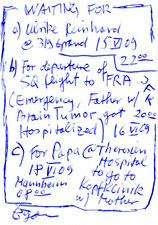 WAITING FOR
a) Ulrike Reinhard
@ 3rd Grand 15 VI 09
b) For departure of 22 00
SQ flight to FRA
(Emergency, Father w/
Brain Tumor, got 20 00
Hospitalized) 16 VI 09
c) For Papa @ Theresien
Hospital
18 VI 09 to go to
Mannheim Kopfklinik
08 00 w/ Mother